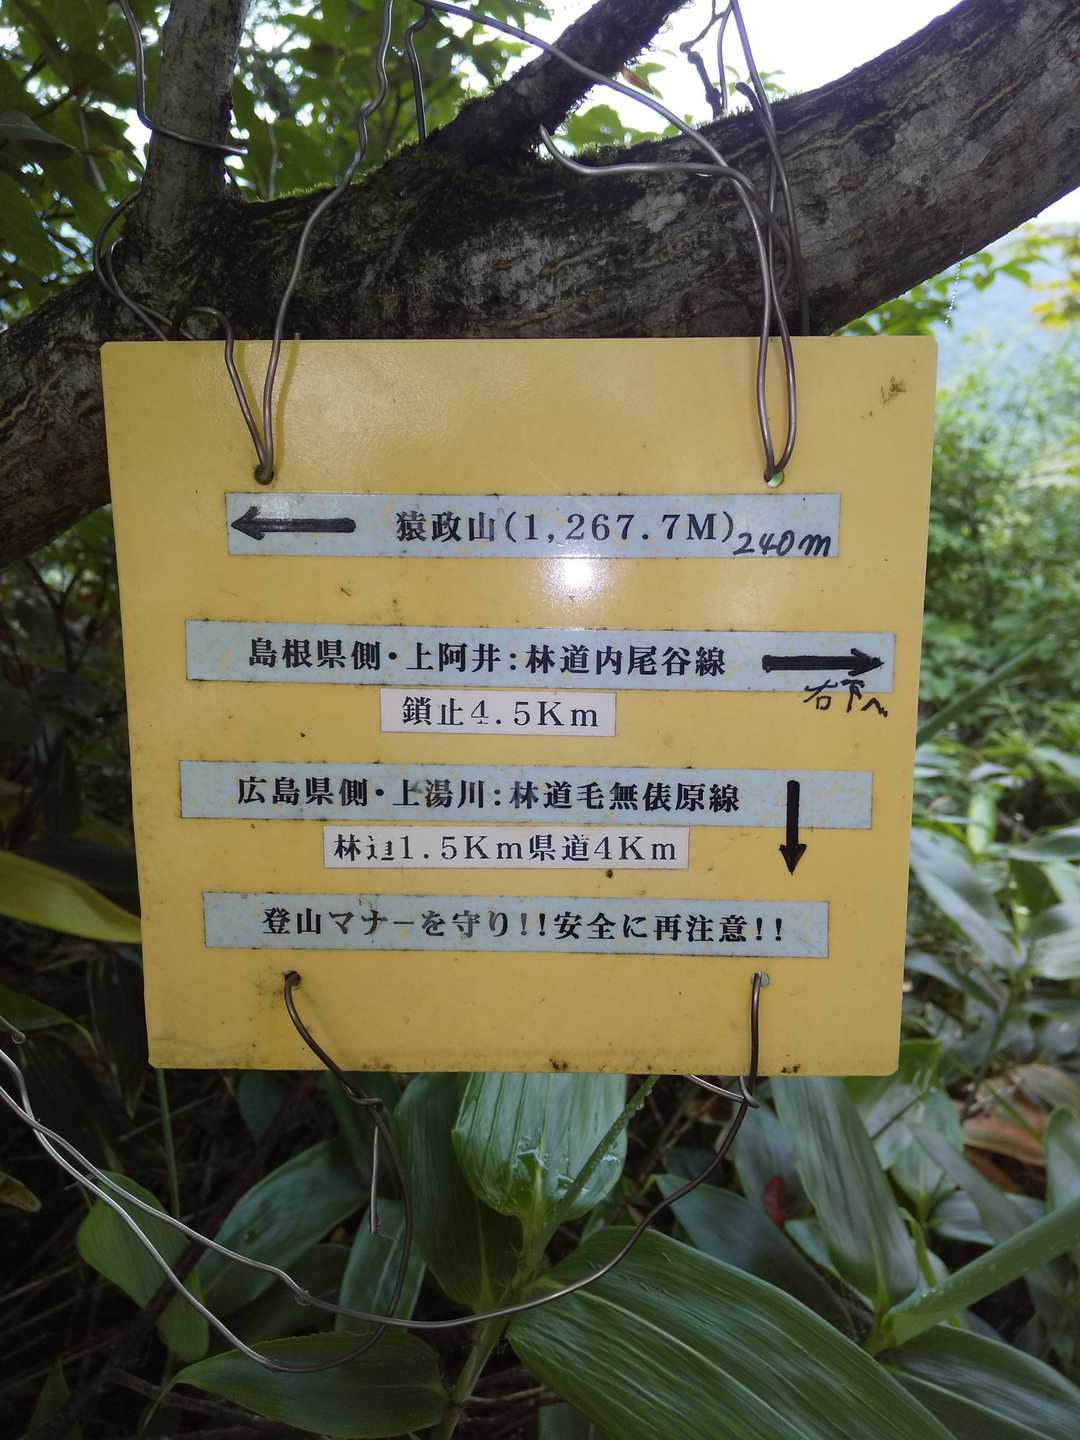 ← 猿政山(1,267.7M) 240m
島根県側・上阿井:林道内尾谷線 →
右下へ
鎖止4.5Km
広島県側・上湯川:林道毛無俵原線 ↓
林道1.5Km県道4Km
登山マナーを守り!!安全に再注意!!